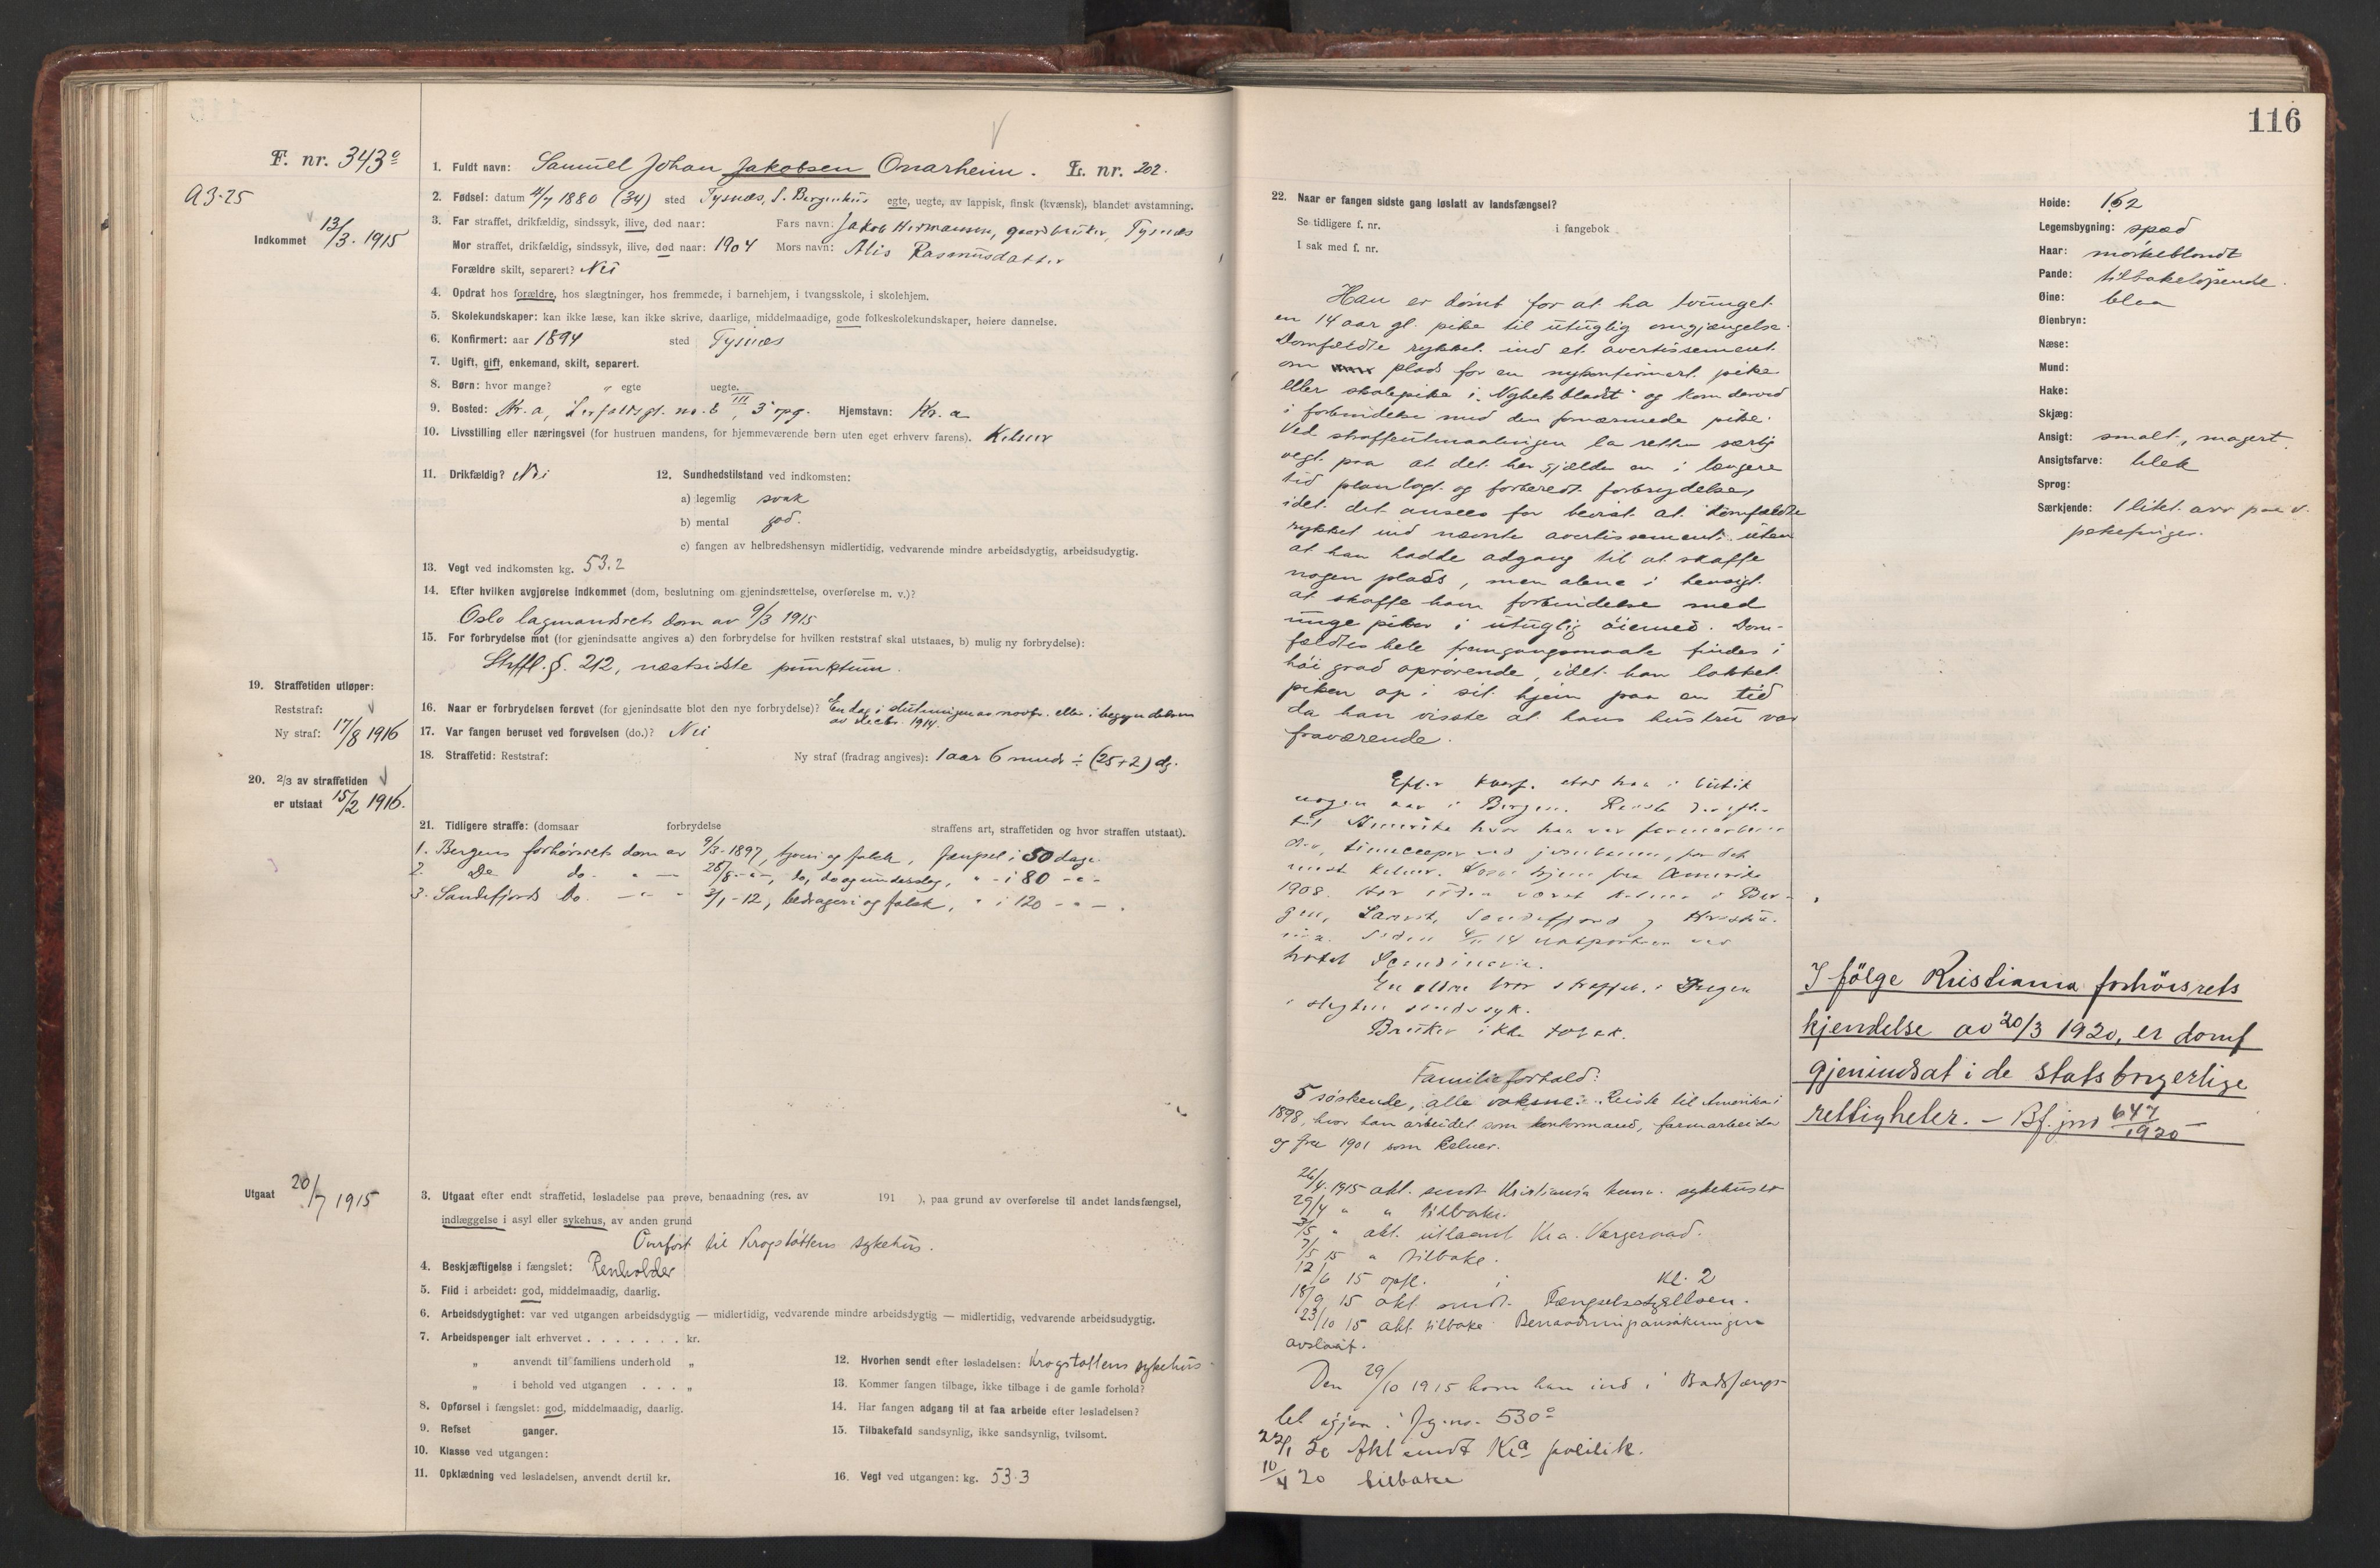 116
F. nr. 343a
A 3-25
Indkommet 13/3. 1915
1. Fuldt navn: Samuel Johan Jakobsen Onarheim. L. nr. 202.
2. Fødsel: datum 4/7 1880 (34) sted Tysnæs, S. Bergenhus egte, uegte, av lappisk, finsk (kvænsk), blandet avstamning.
3. Far straffet, drikfældig, sindssyk, ilive, død naar: Fars navn: Jakob Hermansen, gaardbruker, Tysnæs
Mor straffet, drikfældig, sindssyk, ilive, død naar: 1904 Mors navn: Alis Rasmusdatter
Forældre skilt, separert? Nei
4. Opdrat hos forældre, hos slægtninger, hos fremmede, i barnehjem, i tvangsskole, i skolehjem.
5. Skolekundskaper: kan ikke læse, kan ikke skrive, daarlige, middelmaadige, gode folkeskolekundskaper, høiere dannelse.
6. Konfirmert: aar 1894 sted Tysnæs
7. Ugift, gift, enkemand, skilt, separert.
8. Børn: hvor mange? " egte uegte.
9. Bosted: Kr.a, no. 6 III, 3 opg. Hjemstavn: Kr. a
10. Livsstilling eller næringsvei (for hustruen mandens, for hjemmeværende børn uten eget erhverv farens). Kelner
11. Drikfældig? Nei 12. Sundhedstilstand ved indkomsten:
a) legemlig svak
b) mental god.
c) fangen av helbredshensyn midlertidig, vedvarende mindre arbeidsdygtig, arbeidsudygtig.
13. Vegt ved indkomsten kg. 53.2
14. Efter hvilken avgjørelse indkommet (dom, beslutning om gjenindsættelse, overførelse m. v.)?
Oslo lagmandsrets dom av 9/3 1915
15. For forbrydelse mot (for gjenindsatte angives a) den forbrydelse for hvilken reststraf skal utstaaes, b) mulig ny forbrydelse):
Strffl. §. 212, næstsidste punktum.
16. Naar er forbrydelsen forøvet (for gjenindsatte blot den nye forbrydelse)? En dag i slutningen av novbr. eller i begyndelsen
av decbr. 1914.
17. Var fangen beruset ved forøvelsen (do.)? Nei
18. Straffetid: Reststraf: Ny straf (fradrag angives): 1 aar 6 mndr ÷ (25+2) dg.
19. Straffetiden utløper:
Reststraf:
Ny straf: 17/8 1916
20. 2/3 av straffetiden
er utstaat 15/2 1916.
21. Tidligere straffe: (domsaar forbrydelse straffens art, straffetiden og hvor straffen utstaat).
1. Bergens forhørsrets dom av 9/3-1897, tyveri og falsk, fængsel i 50 dage.
2. Do do. " — 28/8 - " -, do, do og underslag, " - i 80 - " -
3. Sandefjords do. — " - 3/1 - 12, bedrageri og falsk, " i 120 - " - .
Utgaat 20/7 1915
3. Utgaat efter endt straffetid, løsladelse paa prøve, benaadning (res. av 191 ), paa grund av overførelse til andet landsfængsel,
indlæggelse i asyl eller sykehus, av anden grund
Overført til Krogstøttens sykehus.
4. Beskjæftigelse i fængslet: Renholder
5. Flid i arbeidet: god, middelmaadig, daarlig.
6. Arbeidsdygtighet: var ved utgangen arbeidsdygtig — midlertidig, vedvarende mindre arbeidsdygtig — midlertidig, vedvarende arbeidsudygtig.
7. Arbeidspenger ialt erhvervet . . . . . . . kr.
" anvendt til familiens underhold "
" i behold ved utgangen . . . "
8. Opførsel i fængslet: god, middelmaadig, daarlig.
9. Refset ganger.
10. Klasse ved utgangen:
11. Opklædning ved løsladelsen, anvendt dertil kr.
12. Hvorhen sendt efter løsladelsen: Krogstøttens sykehus
13. Kommer fangen tilbage, ikke tilbage i de gamle forhold?
14. Har fangen adgang til at faa arbeide efter løsladelsen?
15. Tilbakefald sandsynlig, ikke sandsynlig, tvilsomt.
16. Vegt ved utgangen: kg. 53.3
22. Naar er fangen sidste gang løslatt av landsfængsel?
Se tidligere f. nr. i fangebok
I sak med f. nr.
Han er dømt for at ha tvunget
en 14 aar gl. pike til utuglig omgjængelse.
Domfældte rykket ind et avertissement
om plads for en nykonfirmert pike
eller skolepike i "Nyhetsbladet" og kom derved
i forbindelse med den fornærmede pike.
Ved straffeutmaalingen la retten særlig
vegt paa at det her gjælder en i længere
tid planlagt og forberedt forbrydelse,
idet det ansees for bevist at domfældte
rykket ind nævnte avertissement uten
at han hadde adgang til at skaffe
nogen plads, men alene i hensigt
at skaffe ham forbindelse med
unge piker i utuglig øiemed. Dom-
fældtes hele fremgangsmaate findes i
høi grad oprørende, idet han lokket
piken op i sit hjem paa en tid
da han visste at hans hustru var
fraværende.
Efter konf. stod han i butik
nogen aar i Bergen. Reiste derefter
til Amerika hvor han var farmarbeider
div, timekeeper ved jernbanen, for det
mest kelner. Kom hjem fra Amerika
1908. Har siden været kelner i Ber-
gen, Larvik, Sandefjord og Kristia-
nia. Siden 4/11 14 natportier ved
hotel Scandinavia.
En ældre bror straffet. Ingen
i slegten sindssyk.
Bruker ikke tobak.
Familieforhold:
5 søskende, alle voksne. Reiste til Amerika i
1898, hvor han arbeidet som kontormand, farmarbeider
og fra 1901 som kelner.
26/4. 1915 akt. sendt Kristiania komm. sykehuser
29/4 " " tilbake.
3/5 " akt. utlaant Kr.a. Vergeraad.
7/5 15 " tilbake.
12/6 15 opfl. i Kl. 2
18/9 15 akt sendt Fængselsstyrelsen.
23/10 15 akt tilbake Benaadningsansøkningen
avslaat.
Den 29/10 1915 kom han ind i Bodsfængs-
let igjen: Fg. no. 530a
22/1 20 Akt sendt Kr.a politik.
10/4 20 tilbake
Høide: 162
Legemsbygning: spæd
Haar: mørkeblondt
Pande: tilbakeløpende.
Øine: blaa
Øienbryn:
Næse:
Mund:
Hake:
Skjæg:
Ansigt: smalt, magert.
Ansigtsfarve: blek
Sprog:
Særkjende: 1 litet arr paa v.
pekefinger.
I følge Kristiania forhørsrets
kjendelse av 20/3 1920, er domf
gjenindsat i de statsborgerlige
rettigheter. — Bf. jnr 647/1920